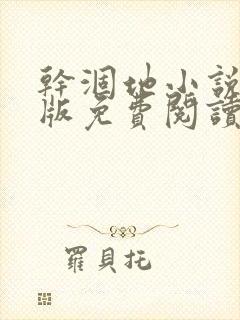 幹涸地小說
版免費閱讀
羅貝托